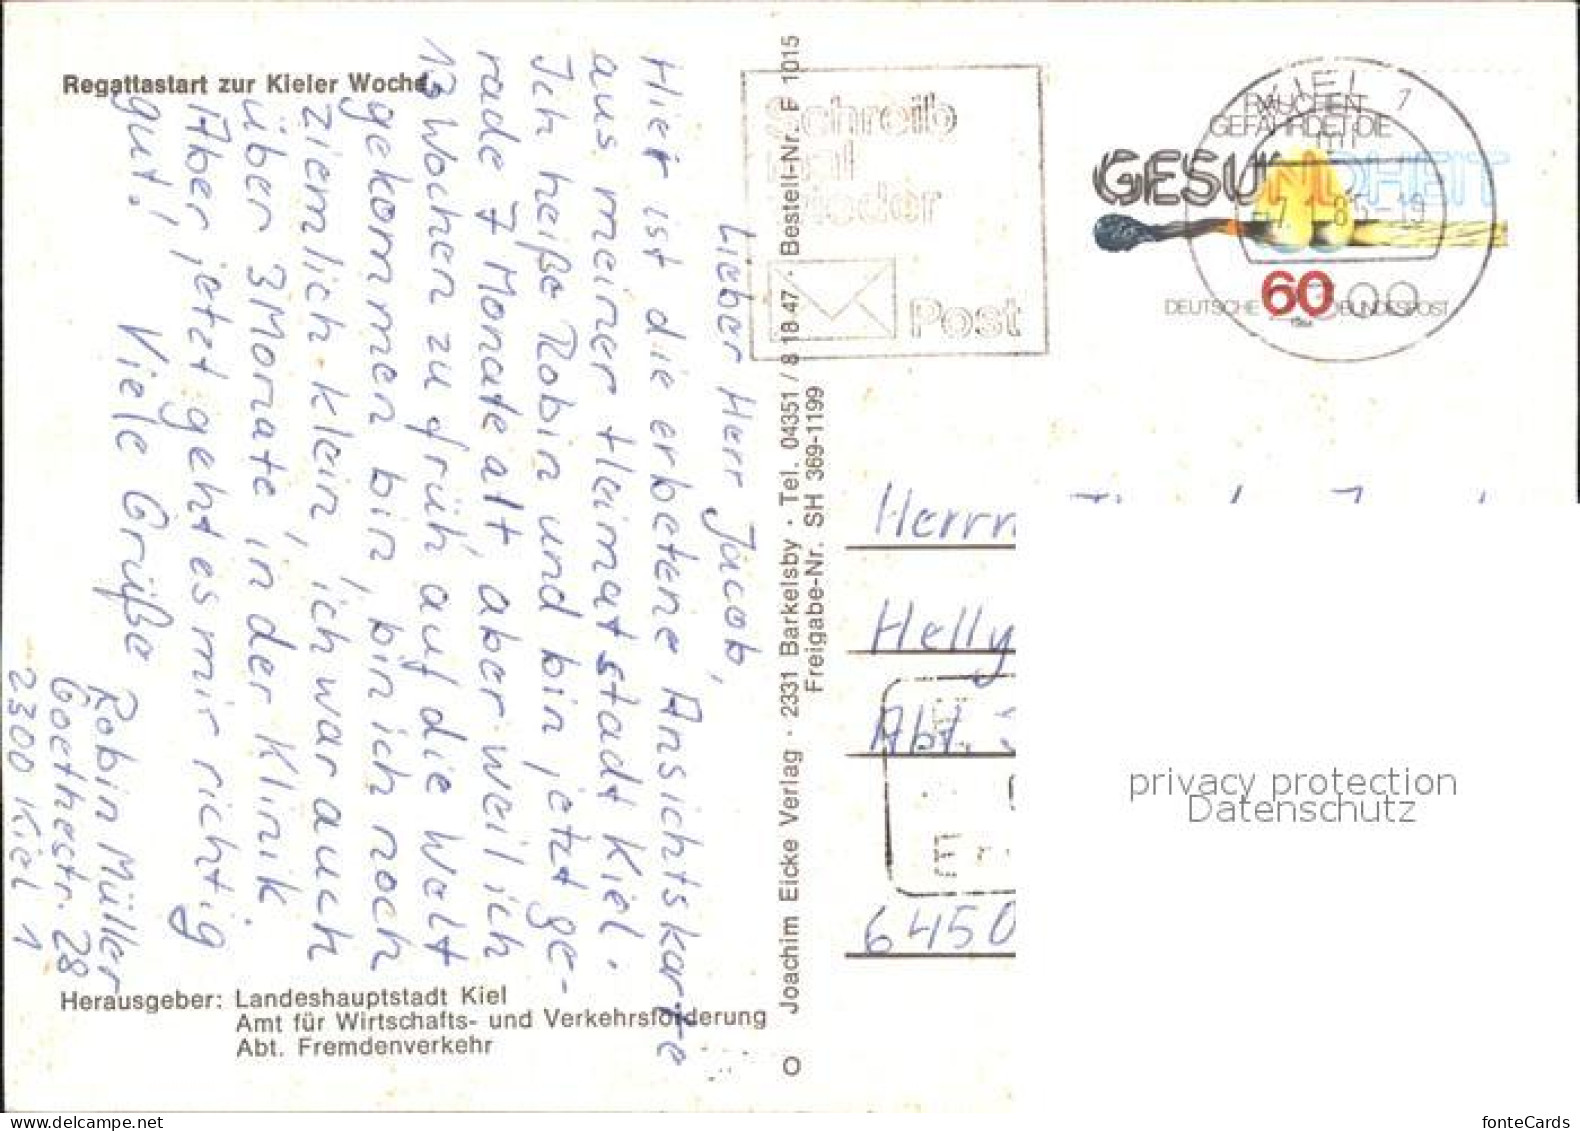 Regattastart zur Kieler Woche
Lieber Herr Jacob,
Hier ist die erbetene Ansichtskarte
aus meiner Heimatstadt Kiel.
Ich heiße Robin und bin jetzt ge-
rade 7 Monate alt, aber weil ich
13 Wochen zu früh auf die Welt
gekommen bin, bin ich noch
ziemlich klein, ich war auch
über 3 Monate in der Klinik.
Aber jetzt geht es mir richtig
gut! Viele Grüße
Robin Müller
Goethestr. 28
2300 Kiel 1
Herausgeber: Landeshauptstadt Kiel
Amt für Wirtschafts- und Verkehrsförderung
Abt. Fremdenverkehr
Joachim Eicke Verlag · 2331 Barkelsby · Tel. 04351 / 8 18 47 · Bestell-Nr. F 1015
Freigabe-Nr. SH 369-1199
Schreib
mal
wieder
Post
KIEL 7
RAUCHEN
GEFÄHRDET DIE
GESUNDHEIT
DEUTSCHE 60 BUNDESPOST
Herrn
Helly
Abt.
6450
privacy protection
Datenschutz
fonteCards